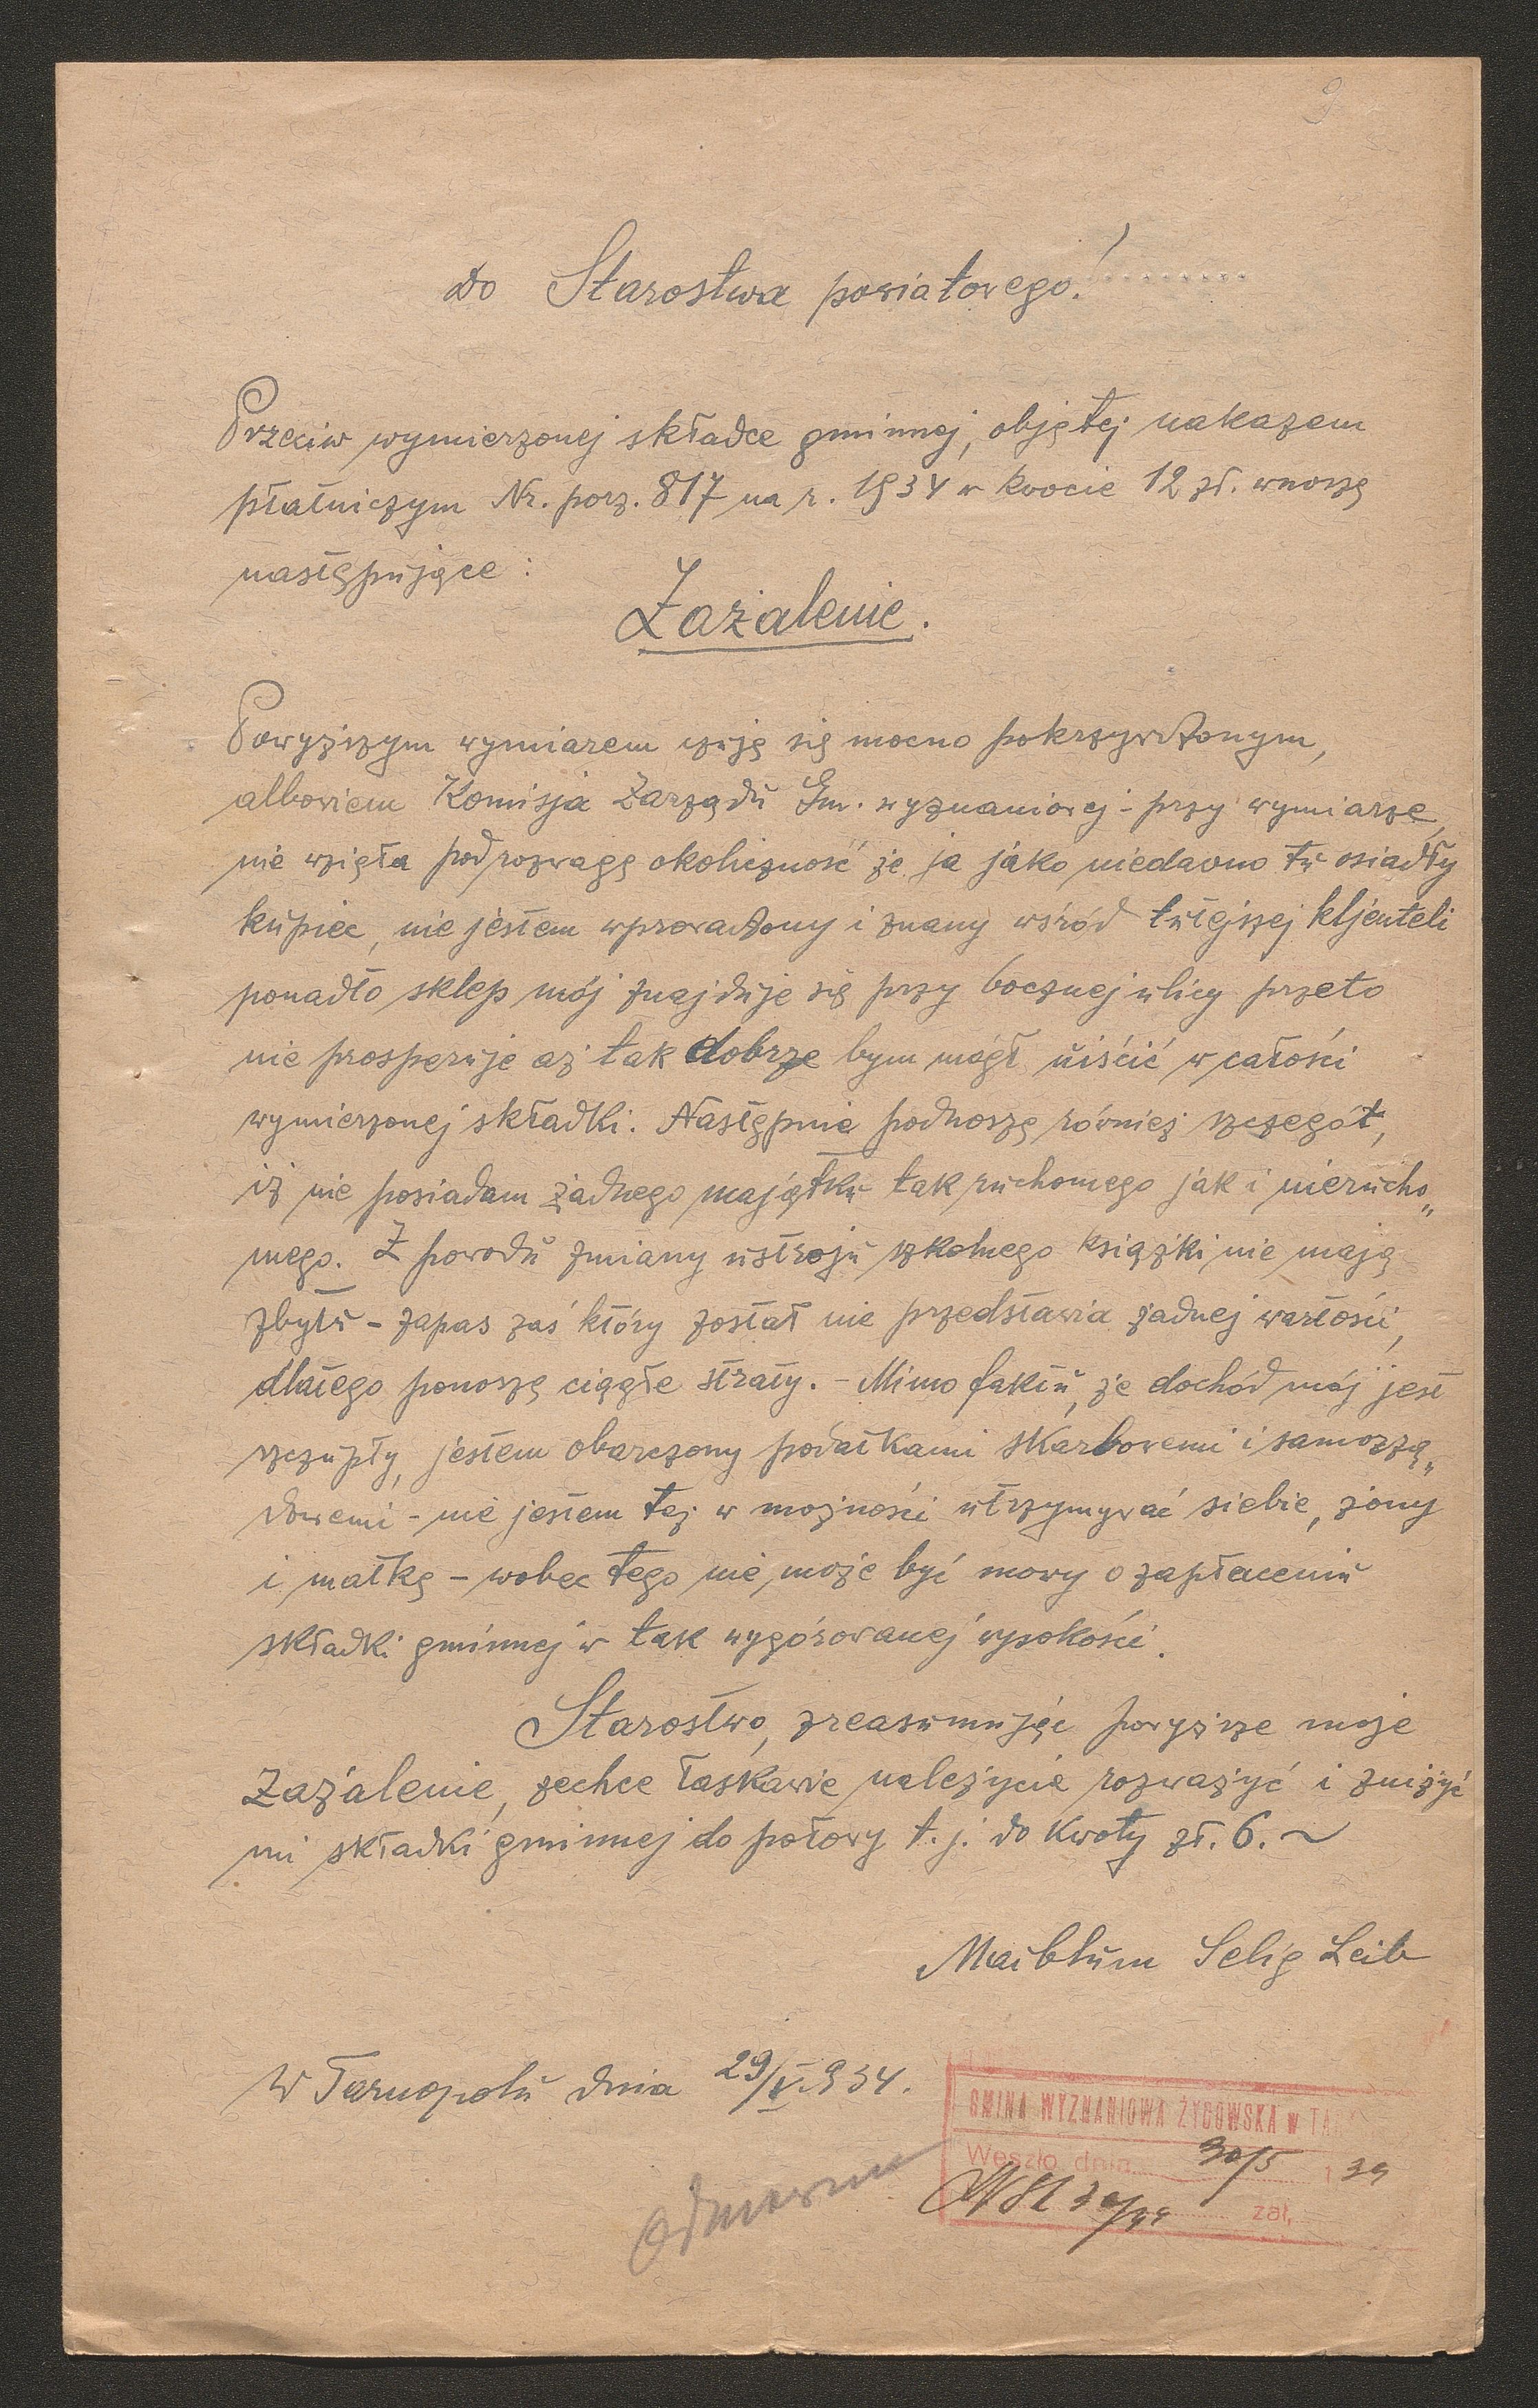 9
do Starostwa powiatowego!
Przeciw wymierzonej składce gminnej, objętej nakazem
płatniczym Nr. porz. 817 na r. 1934 w kwocie 12 zł. wnoszę
następujące:
Zażalenie.
Powyższym wymiarem czuję się mocno pokrzywdzonym,
albowiem Komisja Zarządu Gm. wyznaniowej - przy wymiarze,
nie wzięła pod rozwagę okoliczność że ja jako niedawno tu osiadły
kupiec, nie jestem wprowadzony i znany wśród tutejszej kljenteli
ponadto sklep mój znajduje się przy bocznej ulicy przeto
nie prosperuje aż tak dobrze bym mógł uiścić w całości
wymierzonej składki. Następnie podnoszę również szczegół,
iż nie posiadam żadnego majątku tak ruchomego jak i nierucho„
mego. Z powodu zmiany ustroju szkolnego książki nie mają
zbytu - zapas zaś który został nie przedstawia żadnej wartości,
dlatego ponoszę ciągłe straty. - Mimo faktu, że dochód mój jest
szczupły, jestem obarczony podatkami skarbowemi i samorzą„
dowemi - nie jestem też w możności utrzymywać siebie, żony
i matkę - wobec tego nie, może być mowy o zapłaceniu
składki gminnej w tak wygórowanej wysokości.
Starostwo, zreasumując powyższe moje
zażalenie, zechce łaskawie należycie rozważyć i zniżyć
mi składki gminnej do połowy t. j. do kwoty zł. 6. ~
Maiblum Selig Leib
W Tarnopolu dnia 29/V.934.
GMINA WYZNANIOWA ŻYDOWSKA w TA
Weszło dnia 30/5 1 34
zał.